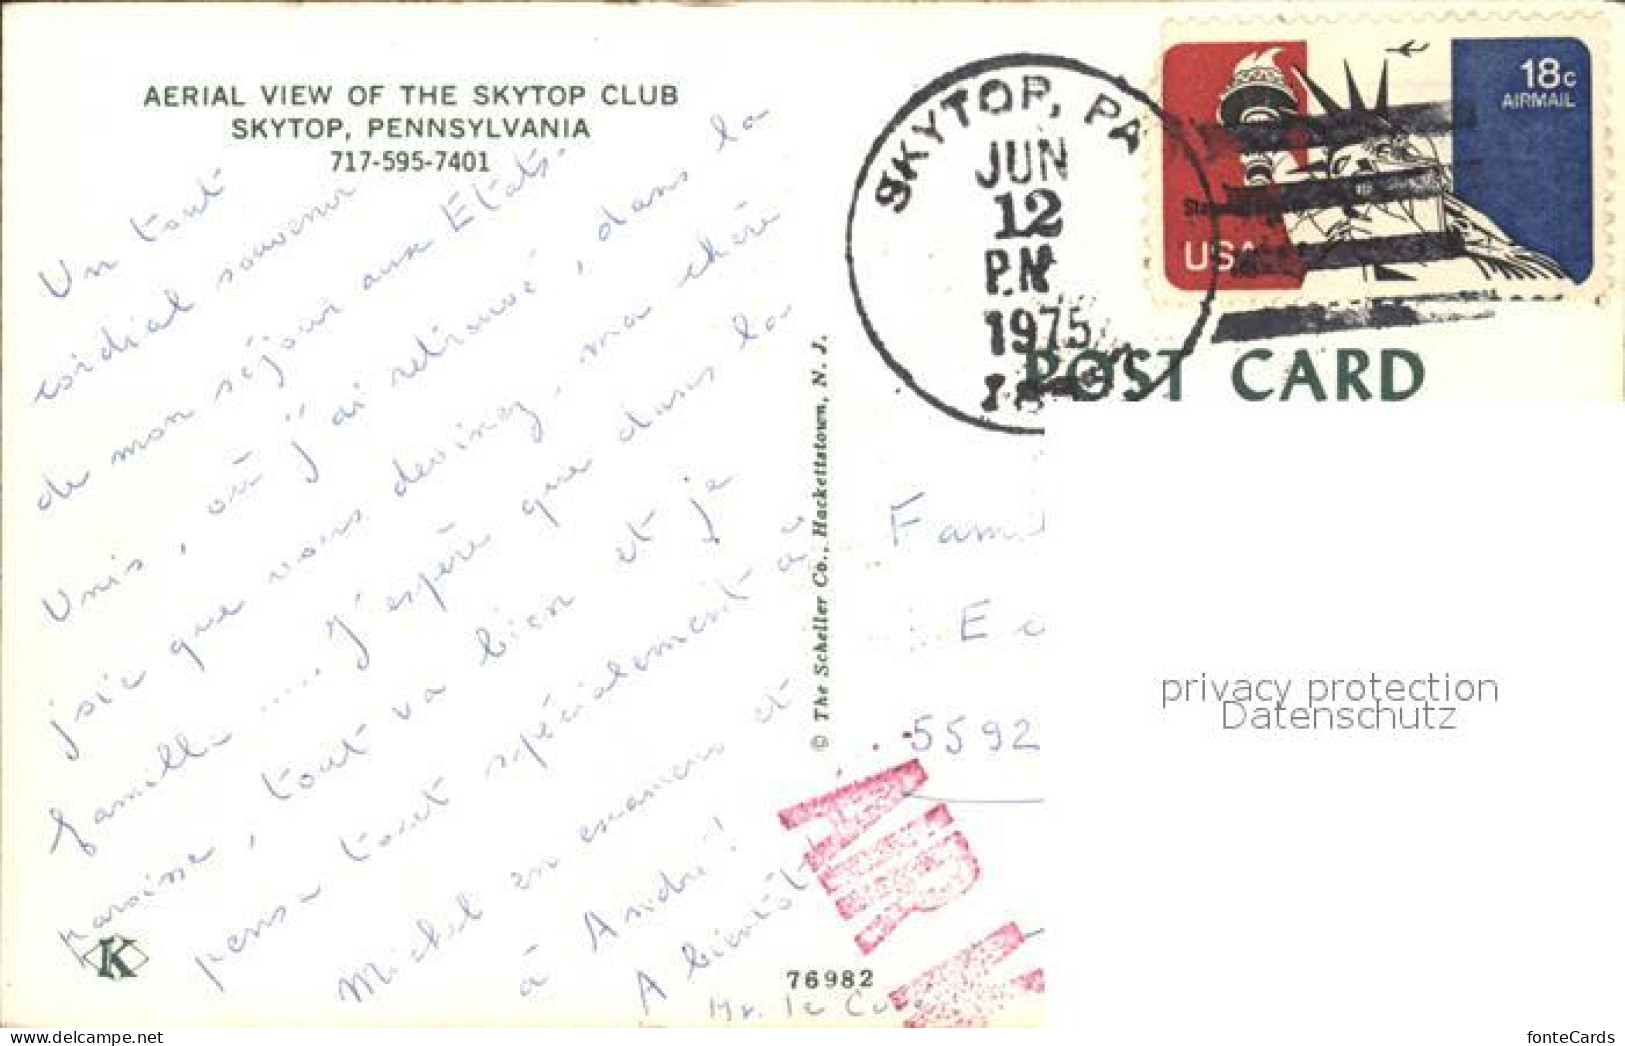 AERIAL VIEW OF THE SKYTOP CLUB
SKYTOP, PENNSYLVANIA
717-595-7401
Un tout
cordial souvenir
de mon séjour aux Etats-
Unis, où j'ai retrouvé, dans la
joie que vous devinez, ma chère
famille ..... J'espère que dans la
paroisse, tout va bien et je
pense tout spécialement à
Michel en examens et
à André!
A bientôt!
Mr. le Curé
76982
K
© The Scheller Co., Hackettstown, N. J.
SKYTOP, PA
JUN
12
PM
1975
18c
AIRMAIL
USA
POST CARD
Fami
Ec
5592
privacy protection
Datenschutz
fonteCards